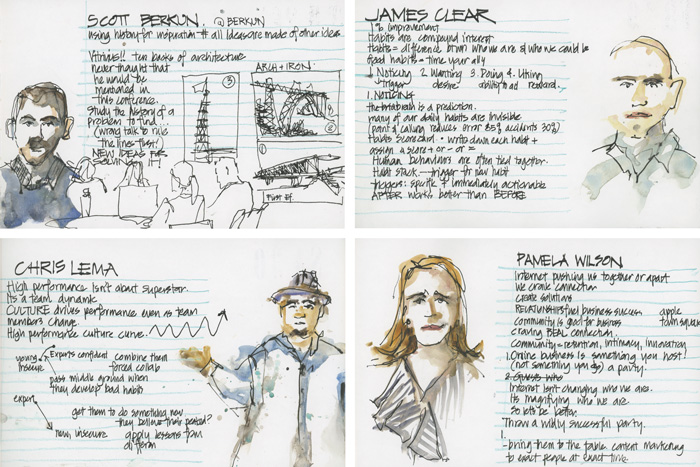 SCOTT BERKUN. @BERKUN
using history for inspiration # all ideas are made of other ideas.
Vitruvius!! ten books of architecture
never thought that
he would be
mentioned in
this conference.
Study the history of a
problem to find
(wrong talk to rule
the lines first!)
NEW IDEAS FOR
SOLVING IT!
ARCH + IRON
③
①
First Ef.
JAMES CLEAR
1% improvement
Habits are compound interest
Habits = difference btwn who we are & who we could be
good habits = time your ally
1. Noticing 2. Wanting 3. Doing 4. Liking
trigger desire ability to ad reward.
1. NOTICING
is a prediction.
many of our daily habits are invisible
point & calling reduces error 85% accidents 30%)
Habits Scorecard • write down each habit +
assign a score + or - or =
Human behaviours are often tied together.
Habit stack trigger for new habit
triggers: specific & immediately actionable
AFTER works better than BEFORE
CHRIS LEMA
High performance isn't about superstar.
Its a team dynamic.
CULTURE drives performance even as team
members change.
High performance culture curve.
young insecure
Experts confident combine them
forced collab
pass middle ground when
they develop bad habits
expert
get them to do something new
they believe their pasted?
new, insecure apply lessons from
different
PAMELA WILSON
Internet pushing us together or apart
We crave connection
create solutions
RELATIONSHIPS fuel business success apple
community is good for business town square
craving REAL connection.
Community = retention, intimacy, innovation
1. Online business is something you host!
(not something you do) a party.
2. Guests who
Internet isn't changing who we are.
Its magnifying who we are.
So lets be better.
Throw a wildly successful party.
1.
-bring them to the table. content marketing
to exact people at exact time.